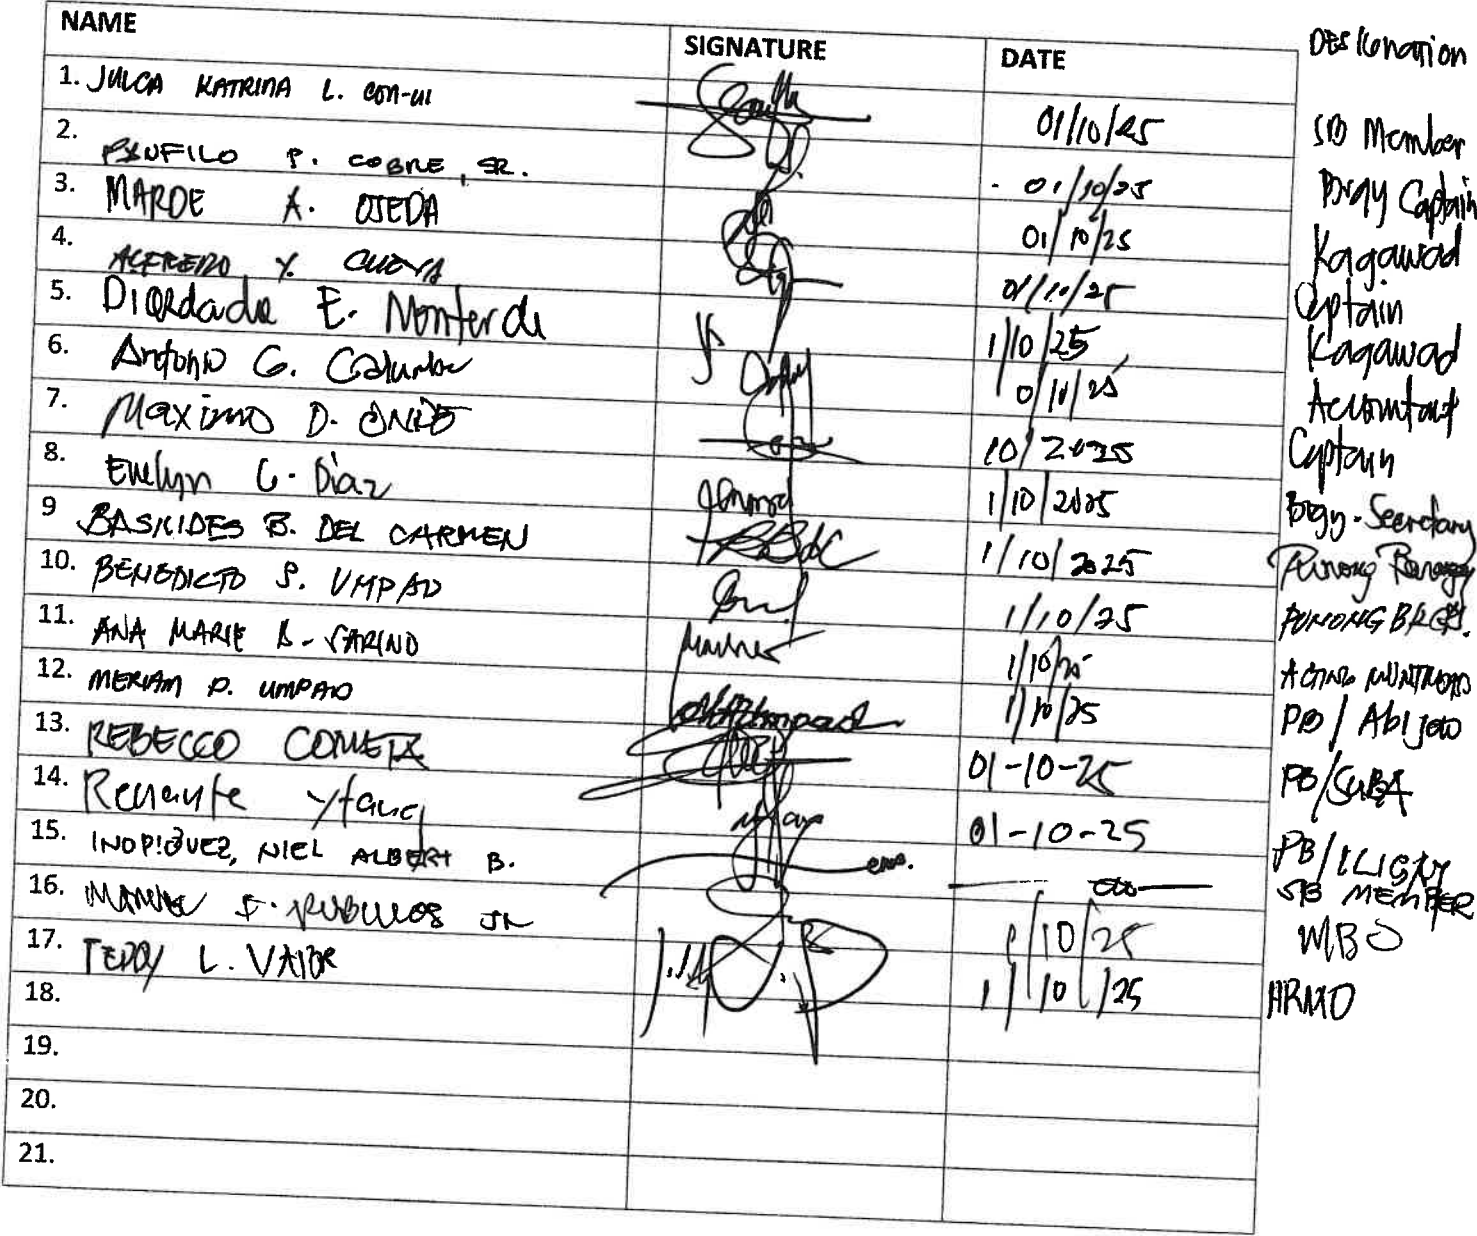 NAME SIGNATURE DATE DESIGNATION
1. JULCA KATRINA L. CON-UI 01/10/25 SB Member
2. PANFILO P. COBRE, SR. 01/10/25 Brgy Captain
3. MARDE A. OJEDA 01/10/25 Kagawad
4. ALFREDO Y. CUEVA 01/10/25 Captain
5. Diosdada E. Monterde 1/10/25 Kagawad
6. Antonio G. 0/10/25 Accountant
7. Maximo D. 10/2025 Captain
8. Evelyn G. Diaz 1/10/2025 Brgy. Secretary
9 BASILIDES B. DEL CARMEN 1/10/2025 Punong Barangay
10. BENEDICTO S. UMPAD 1/10/25 PUNONG BRGY.
11. ANA MARIE B. VARINO 1/10/25 ACTING
12. MERIAM P. UMPAD 1/10/25 PB/Abijao
13. REBECCO COMETA 01-10-25 PB/SUBA
14. Renante Ytang 01-10-25 PB/
15. INOPIQUEZ, NIEL ALBERT B. SB MEMBER
16. JR 1/10/25 MBO
17. TEDDY L. 1/10/25 HRMO
18.
19.
20.
21.